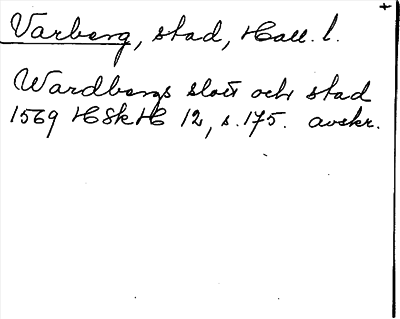 Varberg, stad, Hall. l.
Wardbergs slott och stad
1569 HSkH 12, s. 175. avskr.